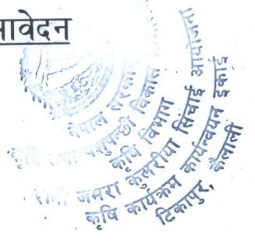 ावेदन
नेपाल सरकार
कृषि तथा पशुपन्छी विकास
कृषि विभाग
रानी जमरा कुलरिया सिंचाई आयोजना
कृषि कार्यक्रम कार्यन्वयन इकाई
टिकापुर, कैलाली